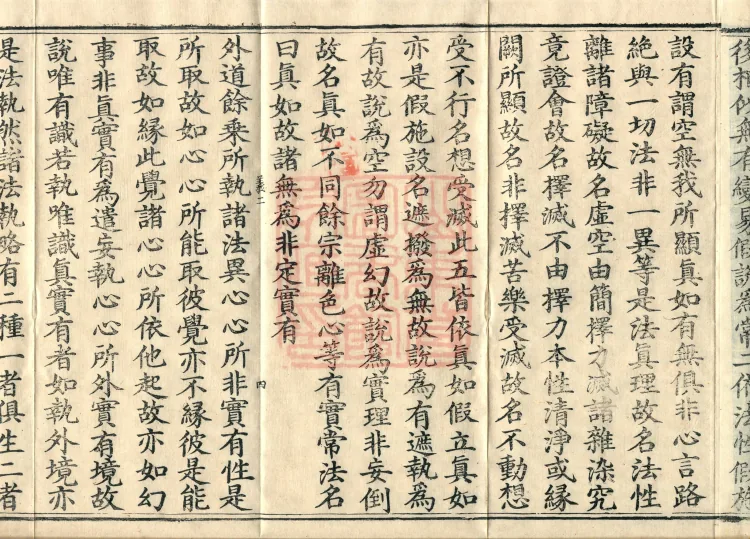 後相似無有變易假說爲常二依法性假施
設有謂空無我所顯眞如有無俱非心言路
絶與一切法非一異等是法眞理故名法性
離諸障礙故名虛空由簡擇力滅諸雜染究
竟證會故名擇滅不由擇力本性清淨或緣
闕所顯故名非擇滅苦樂受滅故名不動想
受不行名想受滅此五皆依眞如假立眞如
亦是假施設名遮撥爲無故說爲有遮執爲
有故說爲空勿謂虛幻故說爲實理非妄倒
故名眞如不同餘宗離色心等有實常法名
曰眞如故諸無爲非定實有
四
外道餘乘所執諸法異心心所非實有性是
所取故如心心所能取彼覺亦不緣彼是能
取故如緣此覺諸心心所依他起故亦如幻
事非眞實有爲遣妄執心心所外實有境故
說唯有識若執唯識眞實有者如執外境亦
是法執然諸法執略有二種一者俱生二者